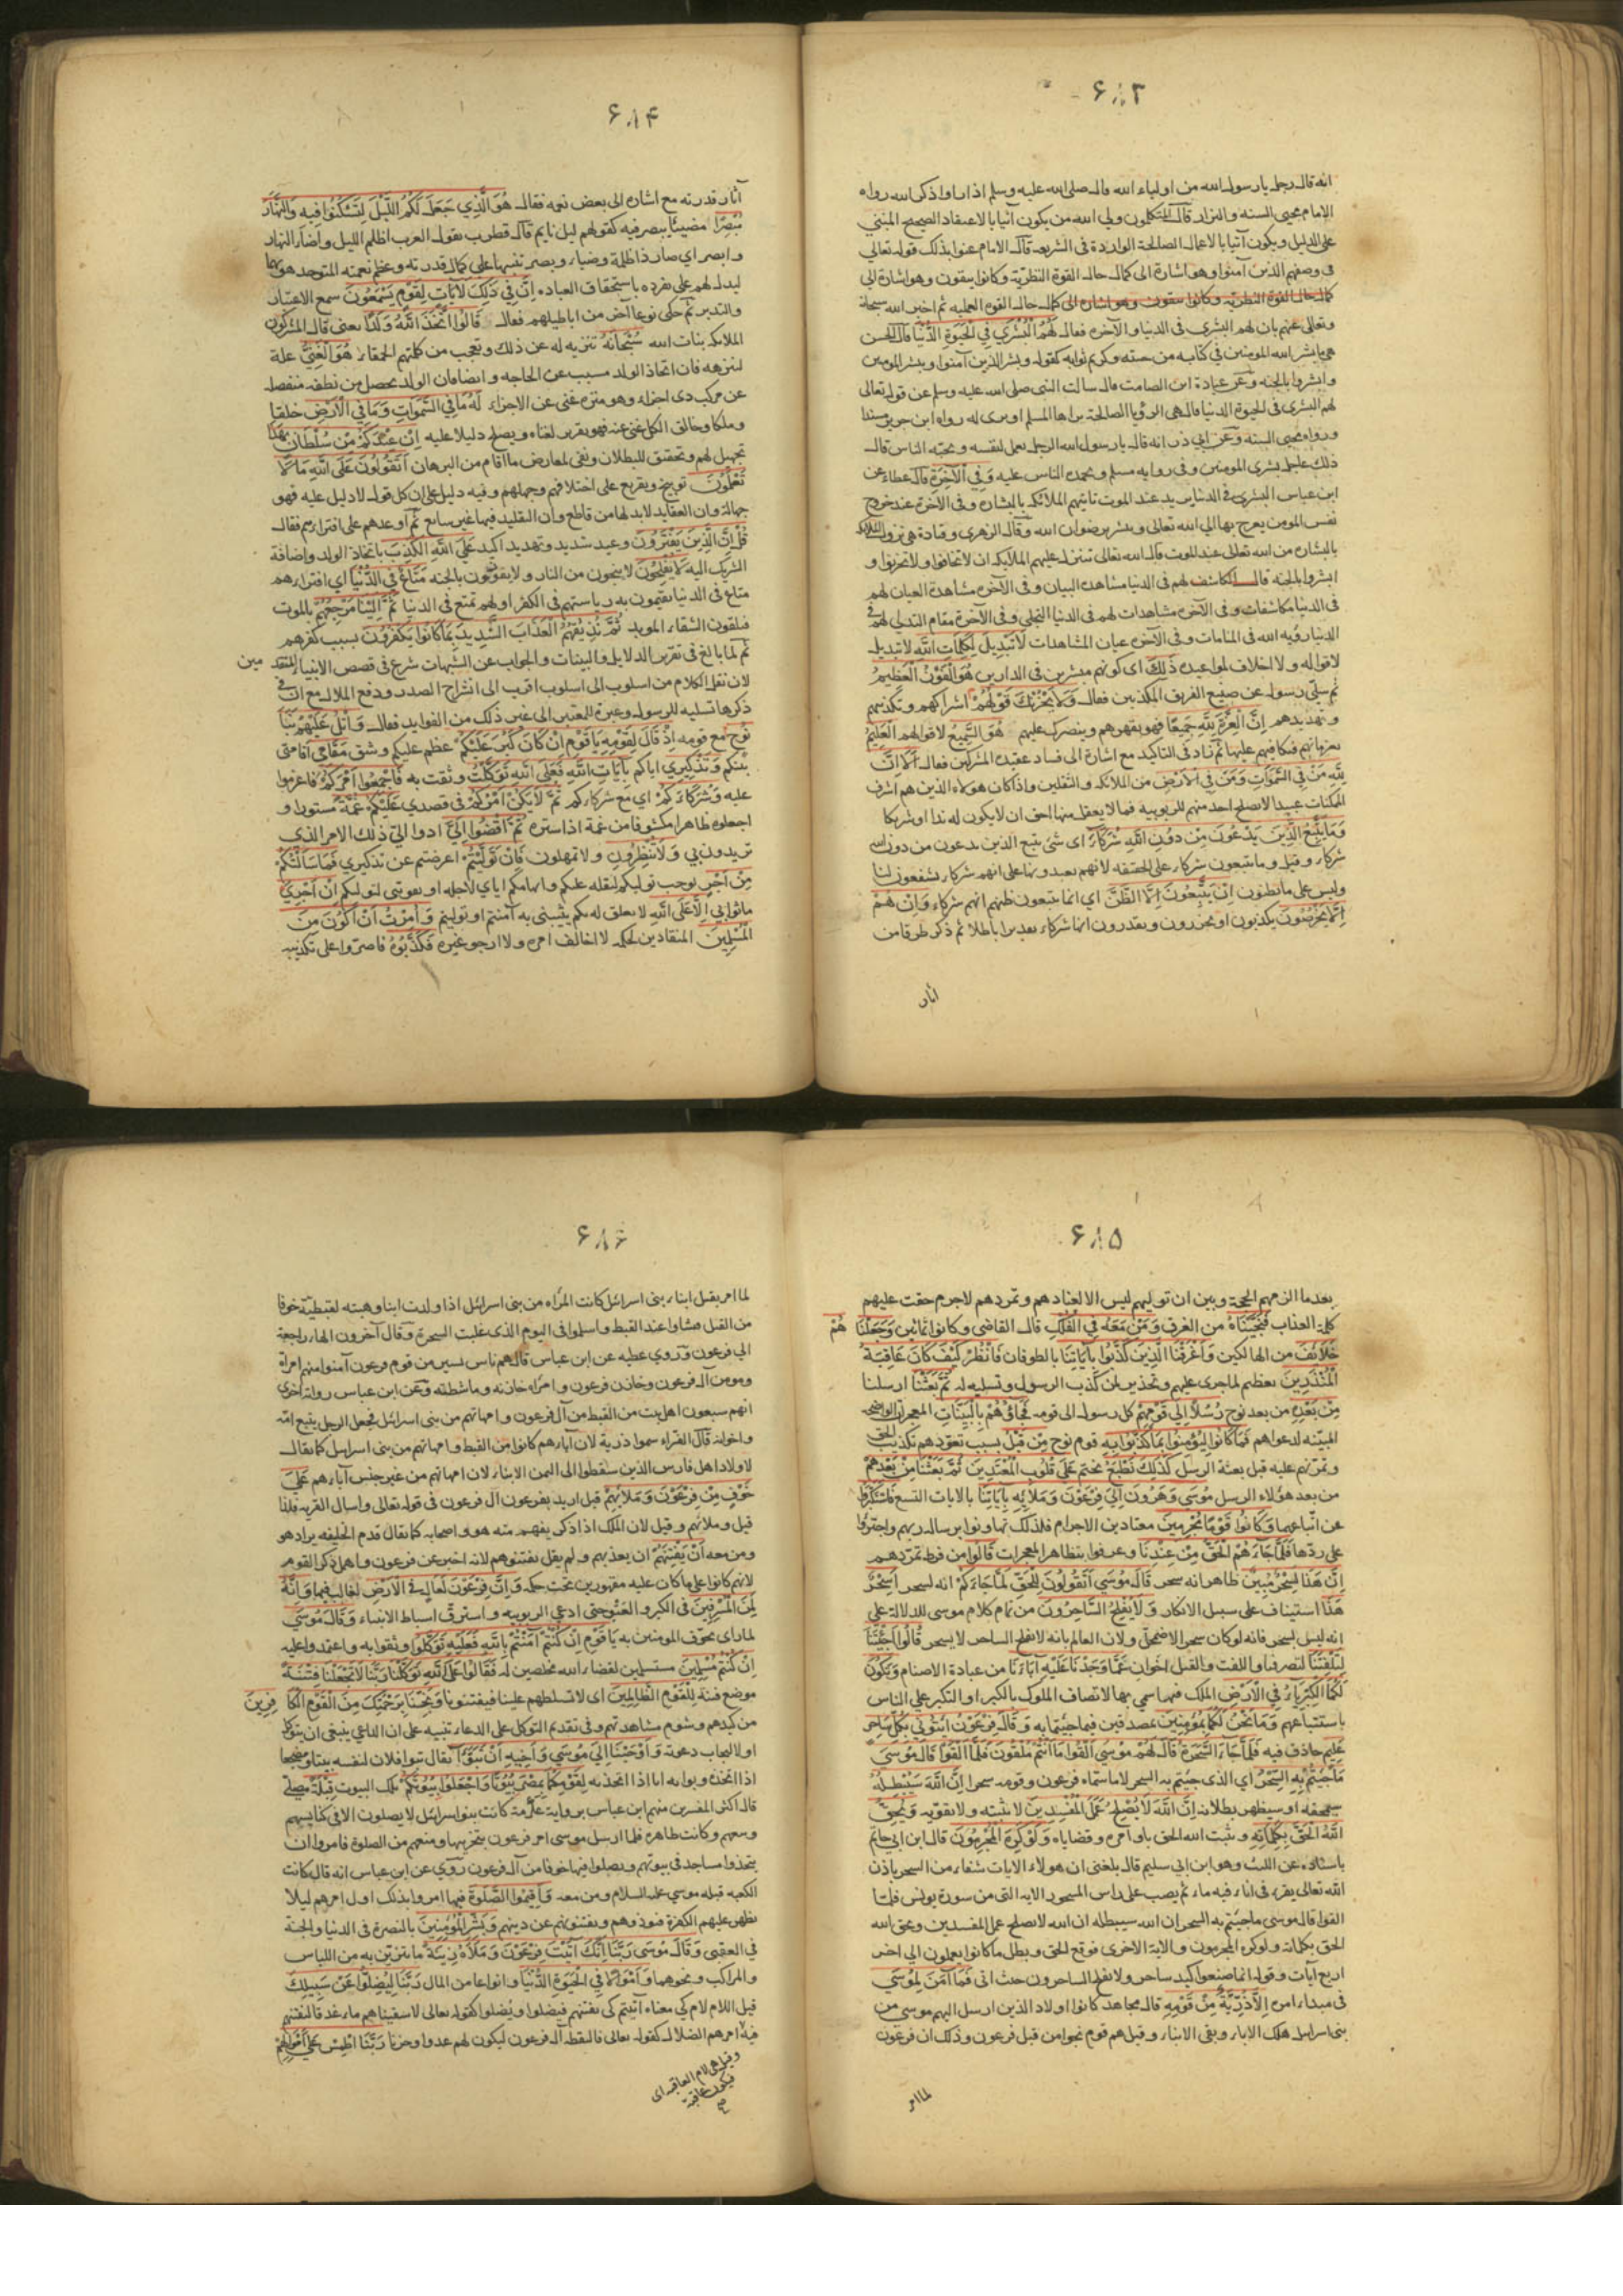 ۶۸۳
انه قال رجل يا رسول الله من اولياء الله قال صلى الله عليه وسلم اذا راوا ذكر الله رواه
الامام محيى السنه والبزار قال المتكلمون ولي الله من يكون آتيا بالاعتقاد الصحيح المبني
على الدليل ويكون آتيا بالاعمال الصالحة الواردة فى الشريعه قال الامام عنوا بذلك قوله تعالى
فى وصفهم الذين آمنوا وهو اشارة الى كمال حال القوة النظرية وكانوا يتقون وهو اشارة الى
كمال حال القوة النظرية وكانوا يتقون وهو اشاره الى كمال حال القوه العمليه ثم اخبر الله سبحانه
وتعالى عنهم بان لهم البشرى فى الدنيا والآخره فقال لَهُمُ الْبُشْرَي فِي الْحَيَوةِ الدُّنْيَا قال الحسن
هي ما بشر الله المومنين في كتابه من جنته وكريم ثوابه كقوله وبشر الذين آمنوا ويبشر المومنين
وابشروا بالجنه وعن عبادة ابن الصامت قال سالت النبى صلى الله عليه وسلم عن قوله تعالى
لهم البشرى فى الحيوة الدنيا قال هى الرؤيا الصالحة يراها المسلم او يرى له رواه ابن جرير مسندا
ورواه محيى السنه وعن ابي ذر انه قال يا رسول الله الرجل يعمل لنفسه ويحبه الناس قال
ذلك عاجل بشرى المومنين وفى روايه مسلم ويحمده الناس عليه وَفِي الْآخِرَةِ قال عطاء عن
ابن عباس البشرى فى الدنيا يريد عند الموت تاتيهم الملائكه بالبشاره وفى الآخرة عند خروج
نفس المومن يعرج بها الي الله تعالى ويبشر برضوان الله وقال الزهرى وقتادة هى نزول الملائكه
بالبشاره من الله تعالى عند الموت قال الله تعالى تتنزل عليهم الملائكه ان لا تخافوا ولا تحزنوا و
ابشروا بالجنه قال الكاشف لهم فى الدنيا مشاهده البيان وفى الآخره مشاهدة العيان لهم
فى الدنيا مكاشفات وفى الآخره مشاهدات لهم فى الدنيا التجلي وفى الآخرة مقام التدلى لهم في
الدنيا رؤيه الله فى المنامات وفى الآخره عيان المشاهدات لَا تَبْدِيلَ لِكَلِمَاتِ اللهِ لا تبديل
لاقواله ولا اخلاف لمواعيده ذَلِكَ اى كونهم مبشرين فى الدارين هُوَ الْفَوْزُ الْعَظِيمُ
ثم سلّي رسوله عن صنيع الفريق المكذبين فقال وَلَا يَحْزُنْكَ قَوْلُهُمْ اشراكهم وتكذيبهم
وتهديدهم اِنَّ الْعِزَّةَ لِلّٰهِ جَمِيعًا فهو يقهرهم وينصرك عليهم هُوَ السَّمِيعُ لاقوالهم الْعَلِيمُ
بعزماتهم فيكافيهم عليها ثم زاد فى التاكيد مع اشارة الى فساد عقيده المشركين فقال اَلَا اِنَّ
لِلّٰهِ مَنْ فِي السَّمَوَاتِ وَمَنْ فِي الْاَرْضِ من الملائكه والثقلين واذا كان هولاء الذين هم اشرف
الممكنات عبيدا لا يصلح احد منهم للربوبيه فما لا يعقل منها احق ان لا يكون له ندا او شريكا
وَمَا يَتَّبِعُ الَّذِينَ يَدْعُونَ مِنْ دُونِ اللهِ شُرَكَاءَ اى شئ يتبع الذين يدعون من دون الله
شركاء وقيل وما يتبعون شركاء على الحقيقه لانهم يعبدونها على انهم شركاء يشفعون لنا
وليس على ما يظنون اِنْ يَتَّبِعُونَ اِلَّا الظَّنَّ اي انما يتبعون ظنهم انهم شركاء وَاِنْ هُمْ
اِلَّا يَخْرُصُونَ يكذبون او يحزرون ويقدرون انها شركاء تقديرا باطلا ثم ذكر طرفا من
اثار
۶۸۴
آثار قدرته مع اشاره الى بعض نعمه فقال هُوَ الَّذِي جَعَلَ لَكُمُ اللَّيْلَ لِتَسْكُنُوا فِيهِ وَالنَّهَارَ
مُبْصِرًا مضيئا يبصر فيه كقولهم ليل نايم قال قطرب يقول العرب اظلم الليل واضاء النهار
وابصر اى صار ذا ظلمة وضياء وبصر تنبيها على كمال قدرته وعظم نعمته المتوحد هو بها
ليدل لهم على تفرده باستحقاق العباده اِنَّ فِي ذَلِكَ لَايَاتٍ لِقَوْمٍ يَسْمَعُونَ سمع الاعتبار
والتدبر ثم حكى نوعا آخر من اباطيلهم فقال قَالُوا اتَّخَذَ اللهُ وَلَدًا يعنى قال المشركون
الملائكه بنات الله سُبْحَانَهُ تنزيه له عن ذلك وتعجب من كلمتهم الحمقاء هُوَ الْغَنِيُّ علة
لتنزهه فان اتخاذ الولد مسبب عن الحاجه وايضا فان الولد يحصل من نطفه منفصله
عن مركب ذى اجزاء وهو منزه غنى عن الاجزاء لَهُ مَا فِي السَّمَوَاتِ وَمَا فِي الْاَرْضِ خلقا
وملكا وخالق الكل غنى عنه فهو تقرير لغناه ويصلح دليلا عليه اِنْ عِنْدَكُمْ مِنْ سُلْطَانٍ بِهَذَا
تجهيل لهم وتحقيق للبطلان ونفى لمعارض ما اقام من البرهان اَتَقُولُونَ عَلَى اللهِ مَا لَا
تَعْلَمُونَ توبيخ وتقريع على اختلافهم وجهلهم وفيه دليل على ان كل قول لا دليل عليه فهو
جهالة وان العقايد لا بد لها من قاطع وان التقليد فيها غير سايغ ثم اوعدهم على افترائهم فقال
قُلْ اِنَّ الَّذِينَ يَفْتَرُونَ وعيد شديد وتهديد اكيد عَلَى اللهِ الْكَذِبَ باتخاذ الولد واضافة
الشريك اليه لَا يُفْلِحُونَ لا ينجون من النار ولا يفوزون بالجنه مَتَاعٌ فِي الدُّنْيَا اي افتراءهم
متاع فى الدنيا يقيمون به رياستهم فى الكفر او لهم تمتع فى الدنيا ثُمَّ اِلَيْنَا مَرْجِعُهُمْ بالموت
فيلقون الشقاء الموبد ثُمَّ نُذِيقُهُمُ الْعَذَابَ الشَّدِيدَ بِمَا كَانُوا يَكْفُرُونَ بسبب كفرهم
ثم لما بالغ فى تقرير الدلايل والبينات والجواب عن الشبهات شرع فى قصص الانبيا المتقدمين
لان نقل الكلام من اسلوب الى اسلوب اقرب الى انشراح الصدر ودفع الملال مع ان في
ذكرها تسليه للرسول وعبرة للمعتبر الى غير ذلك من الفوايد فقال وَاتْلُ عَلَيْهِمْ نَبَاَ
نُوحٍ مع قومه اِذْ قَالَ لِقَوْمِهِ يَا قَوْمِ اِنْ كَانَ كَبُرَ عَلَيْكُمْ عظم عليكم وشق مَقَامِي اقامتى
بينكم وَتَذْكِيرِي اياكم بِآيَاتِ اللهِ فَعَلَى اللهِ تَوَكَّلْتُ وثقت به فَاَجْمِعُوا اَمْرَكُمْ فاعزموا
عليه وَشُرَكَاءَكُمْ اي مع شركائكم ثُمَّ لَا يَكُنْ اَمْرُكُمْ فى قصدى عَلَيْكُمْ غُمَّةً مستورا و
اجعلوه ظاهرا مكشوفا من غمة اذا ستره ثُمَّ اقْضُوا اِلَيَّ ادوا اليّ ذلك الامر الذى
تريدون بي وَلَا تُنْظِرُونِ ولا تمهلون فَاِنْ تَوَلَّيْتُمْ اعرضتم عن تذكيري فَمَا سَاَلْتُكُمْ
مِنْ اَجْرٍ يوجب توليكم لثقله عليكم واتهامكم اياي لاجله او يفوتنى لتوليكم اِنْ اَجْرِيَ
ما ثوابي اِلَّا عَلَى اللهِ لا تعلق له بكم يثيبنى به آمنتم او توليتم وَاُمِرْتُ اَنْ اَكُونَ مِنَ
الْمُسْلِمِينَ المنقادين لحكمه لا اخالف امره ولا ارجو غيره فَكَذَّبُوهُ فاصروا على تكذيبه
۶۸۵
بعد ما الزمهم الحجة وبين ان توليهم ليس الا لعنادهم وتمردهم لا جرم حقت عليهم
كلمة العذاب فَنَجَّيْنَاهُ من الغرق وَمَنْ مَعَهُ فِي الْفُلْكِ قال القاضى وكانوا ثمانين وَجَعَلْنَاهُمْ
خَلَائِفَ من الهالكين وَاَغْرَقْنَا الَّذِينَ كَذَّبُوا بِآيَاتِنَا بالطوفان فَانْظُرْ كَيْفَ كَانَ عَاقِبَةُ
الْمُنْذَرِينَ تعظيم لما جرى عليهم وتحذير لمن كذب الرسول وتسليه له ثُمَّ بَعَثْنَا ارسلنا
مِنْ بَعْدِهِ من بعد نوح رُسُلًا اِلَى قَوْمِهِمْ كل رسول الى قومه فَجَاؤُهُمْ بِالْبَيِّنَاتِ المعجزات الواضحه
المبينه لدعواهم فَمَا كَانُوا لِيُؤْمِنُوا بِمَا كَذَّبُوا بِهِ قوم نوح مِنْ قَبْلُ بسبب تعودهم تكذيب الحق
وتمرنهم عليه قبل بعثة الرسل كَذَلِكَ نَطْبَعُ نختم عَلَى قُلُوبِ الْمُعْتَدِينَ ثُمَّ بَعَثْنَا مِنْ بَعْدِهِمْ
من بعد هؤلاء الرسل مُوسَى وَهَرُونَ اِلَى فِرْعَوْنَ وَمَلَائِهِ بِآيَاتِنَا بالايات التسع فَاسْتَكْبَرُوا
عن اتباعهما وَكَانُوا قَوْمًا مُجْرِمِينَ معتادين الاجرام فلذلك تهاونوا برسالة ربهم واجترؤا
على ردها فَلَمَّا جَاءَهُمُ الْحَقُّ مِنْ عِنْدِنَا وعرفوا بتظاهر المعجزات قَالُوا من فرط تمردهم
اِنَّ هَذَا لَسِحْرٌ مُبِينٌ ظاهر انه سحر قَالَ مُوسَى اَتَقُولُونَ لِلْحَقِّ لَمَّا جَاءَكُمْ انه لسحر اَسِحْرٌ
هَذَا استيناف على سبيل الانكار وَلَا يُفْلِحُ السَّاحِرُونَ من تمام كلام موسى للدلالة على
انه ليس بسحر فانه لو كان سحر الاضمحل ولان العالم بانه لا يفلح الساحر لا يسحر قَالُوا اَجِئْتَنَا
لِتَلْفِتَنَا لتصرفنا واللفت والفتل اخوان عَمَّا وَجَدْنَا عَلَيْهِ آبَاءَنَا من عبادة الاصنام وَتَكُونَ
لَكُمَا الْكِبْرِيَاءُ فِي الْاَرْضِ الملك فيها سمي بها لاتصاف الملوك بالكبر او التكبر علي الناس
باستتباعهم وَمَا نَحْنُ لَكُمَا بِمُؤْمِنِينَ بمصدقين فيما جئتما به وَقَالَ فِرْعَوْنُ ائْتُونِي بِكُلِّ سَاحِرٍ
عَلِيمٍ حاذق فيه فَلَمَّا جَاءَ السَّحَرَةُ قَالَ لَهُمْ مُوسَى اَلْقُوا مَا اَنْتُمْ مُلْقُونَ فَلَمَّا اَلْقَوْا قَالَ مُوسَى
مَا جِئْتُمْ بِهِ السِّحْرُ اي الذى جئتم به السحر لا ما سماه فرعون وقومه سحرا اِنَّ اللهَ سَيُبْطِلُهُ
سيمحقه او سيظهر بطلانه اِنَّ اللهَ لَا يُصْلِحُ عَمَلَ الْمُفْسِدِينَ لا يثبته ولا يقويه وَيُحِقُّ
اللهُ الْحَقَّ بِكَلِمَاتِهِ ويثبت الله الحق باوامره وقضاياه وَلَوْ كَرِهَ الْمُجْرِمُونَ قال ابن ابي حاتم
باسناده عن الليث وهو ابن ابي سليم قال بلغنى ان هولاء الايات شفاء من السحر باذن
الله تعالى يقرء فى اناء فيه ماء ثم يصب على راس المسحور الايه التى من سورة يونس فلما
القوا قال موسى ما جئتم به السحر ان الله سيبطله ان الله لا يصلح عمل المفسدين ويحق الله
الحق بكلماته ولو كره المجرمون والاية الاخرى فوقع الحق وبطل ما كانوا يعملون الى اخر
اربع آيات وقوله انما صنعوا كيد ساحر ولا يفلح الساحر حيث اتى فَمَا آمَنَ لِمُوسَى
فى مبداء امره اِلَّا ذُرِّيَّةٌ مِنْ قَوْمِهِ قال مجاهد كانوا اولاد الذين ارسل اليهم موسى من
بنى اسرايل هلك الاباء وبقى الابناء وقيل هم قوم نجوا من قتل فرعون وذلك ان فرعون
لما امر
۶۸۶
لما امر بقتل ابناء بنى اسرائل كانت المراه من بنى اسرائل اذا ولدت ابنا وهبته لقبطية خوفا
من القتل فنشاوا عند القبط واسلموا فى اليوم الذى غلبت السحرة وقال آخرون الهاء راجعة
الي فرعون وروي عطيه عن ابن عباس قال هم ناس يسير من قوم فرعون آمنوا منهم امراة
ومومن آل فرعون وخازن فرعون وامراه خازنه وماشطته وعن ابن عباس رواية اخرى
انهم سبعون اهل بيت من القبط من آل فرعون وامهاتهم من بنى اسرائل فجعل الرجل يتبع امه
واخواله قال الفراء سموا ذرية لان اباءهم كانوا من القبط وامهاتهم من بنى اسرايل كما يقال
لاولاد اهل فارس الذين سقطوا الى اليمن الابناء لان امهاتهم من غير جنس آبائهم عَلَى
خَوْفٍ مِنْ فِرْعَوْنَ وَمَلَائِهِمْ قيل اريد بفرعون آل فرعون فى قوله تعالى واسال القريه فلذا
قيل وملائهم وقيل لان الملك اذا ذكر يفهم منه هو واصحابه كما يقال قدم الخليفه يراد هو
ومن معه اَنْ يَفْتِنَهُمْ ان يعذبهم ولم يقل يفتنوهم لانه اخبر عن فرعون واهمل ذكر القوم
لانهم كانوا على ما كان عليه مقهورين تحت حكمه وَاِنَّ فِرْعَوْنَ لَعَالٍ فِي الْاَرْضِ لغالب فيها وَاِنَّهُ
لَمِنَ الْمُسْرِفِينَ فى الكبر والعتو حتى ادعى الربوبيه واسترق اسباط الانبياء وَقَالَ مُوسَى
لما راى تخوف المومنين به يَا قَوْمِ اِنْ كُنْتُمْ آمَنْتُمْ بِاللهِ فَعَلَيْهِ تَوَكَّلُوا وثقوا به واعتمدوا عليه
اِنْ كُنْتُمْ مُسْلِمِينَ مستسلمين لقضاء الله مخلصين له فَقَالُوا عَلَى اللهِ تَوَكَّلْنَا رَبَّنَا لَا تَجْعَلْنَا فِتْنَةً
موضع فتنة لِلْقَوْمِ الظَّالِمِينَ اى لا تسلطهم علينا فيفتنونا وَنَجِّنَا بِرَحْمَتِكَ مِنَ الْقَوْمِ الْكَافِرِينَ
من كيدهم وشوم مشاهدتهم وفى تقديم التوكل على الدعاء تنبيه على ان الداعي ينبغى ان يتوكل
اولا لتجاب دعوته وَاَوْحَيْنَا اِلَى مُوسَى وَاَخِيهِ اَنْ تَبَوَّآ يقال تبوا فلان لنفسه بيتا ومضجعا
اذا اتخذه وبواته انا اذا اتخذته لِقَوْمِكُمَا بِمِصْرَ بُيُوتًا وَاجْعَلُوا بُيُوتَكُمْ تلك البيوت قِبْلَةً مصلى
قال اكثر المفسرين منهم ابن عباس برواية عكرمة كانت بنوا اسرائل لا يصلون الا فى كنايسهم
وبيعهم وكانت ظاهره فلما ارسل موسى امر فرعون بتخريبها ومنعهم من الصلوة فامروا ان
يتخذوا مساجد فى بيوتهم ويصلوا فيها خوفا من آل فرعون روي عن ابن عباس انه قال كانت
الكعبه قبله موسي عليه السلام ومن معه وَاَقِيمُوا الصَّلَوةَ فيها امروا بذلك اول امرهم ليلا
يظهر عليهم الكفرة فيوذوهم ويفتنونهم عن دينهم وَبَشِّرِ الْمُؤْمِنِينَ بالنصرة فى الدنيا والجنة
في العقبى وَقَالَ مُوسَى رَبَّنَا اِنَّكَ آتَيْتَ فِرْعَوْنَ وَمَلَأَهُ زِينَةً ما يتزين به من اللباس
والمراكب ونحوهما وَاَمْوَالًا فِي الْحَيَوةِ الدُّنْيَا وانواعا من المال رَبَّنَا لِيُضِلُّوا عَنْ سَبِيلِكَ
قيل اللام لام كي معناه آتيتهم كى تفتنهم فيضلوا ويُضلوا كقوله تعالى لاسقيناهم ماء غدقا لنفتنهم
فيه امرهم الضلال كقوله تعالى فالتقطه آل فرعون ليكون لهم عدوا وحزنا رَبَّنَا اطْمِسْ عَلَى اَمْوَالِهِمْ
وقيل هى لام العاقبه اى
فيكون عاقبة